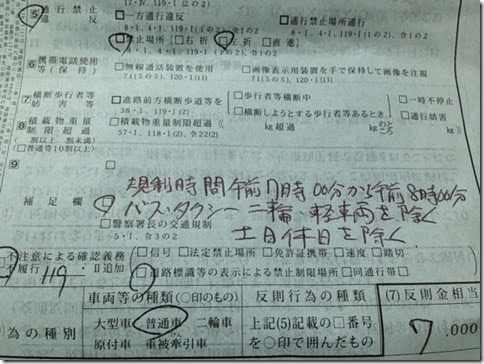 17・Ⅳ、119・1(2の2)
5 通行禁止違反 □一方通行違反 □通行禁止場所通行
8・1、4・1、119・1(1の2)、令1の2 8・1、4・1、119・1(1の2)、令1の2
禁止場所〔□右折 □左折 □直進〕
8・1、4・1、119・1(1の2)、令1の2
6 携帯電話使用等(保持) □無線通話装置を使用 □画像表示用装置を手で保持して画像を注視
71(5の5)、120・1(11) 71(5の5)、120・1(11)
7 横断歩行者等妨害等 □道路前方横断歩道等を □歩行者等横断中 □一時不停止
38・1、119・1(2) □横断しようとする歩行者等あるとき □通行妨害
8 積載物重量制限超過 □積載物重量制限超過 kg超過 kgのところ kg
割以上(普通等10割以上) 57・1、118・1(2)、令22(2)
9 □
補足欄 規制時間午前7時00分から午前8時00分
バス・タクシー、二輪・軽車両を除く
土日休日を除く
□警察署長の交通規制
5・1、令3の2
不注意による確認義務 □信号 □法定禁止場所 □免許証携帯 □速度 □踏切
不履行 119・Ⅱ追加 □道路標識等の表示による禁止制限場所 □同通行帯
為の種別 車両等の種類(○印のもの) 反則行為の種類 (7)反則金相当
大型車 普通車 二輪車 上記(5)記載の□番号 7,000
原付車 重被牽引車 を○印で囲んだもの